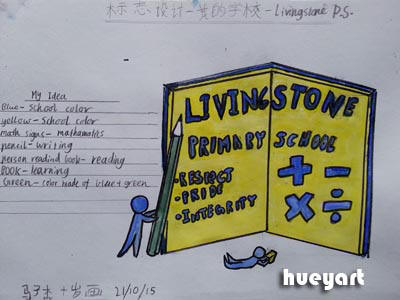 标志设计-我的学校-Livingstone P.S.
My Idea
Blue-School color
yellow-School color
math signs-mathamatics
pencil-writing
person readind book-reading
Book-learning
Green-color made of blue+green
LIVINGSTONE
PRIMARY SCHOOL
•RESPECT
•PRIDE
•INTEGRITY
+ -
× ÷
十岁画 21/10/15
hueyart